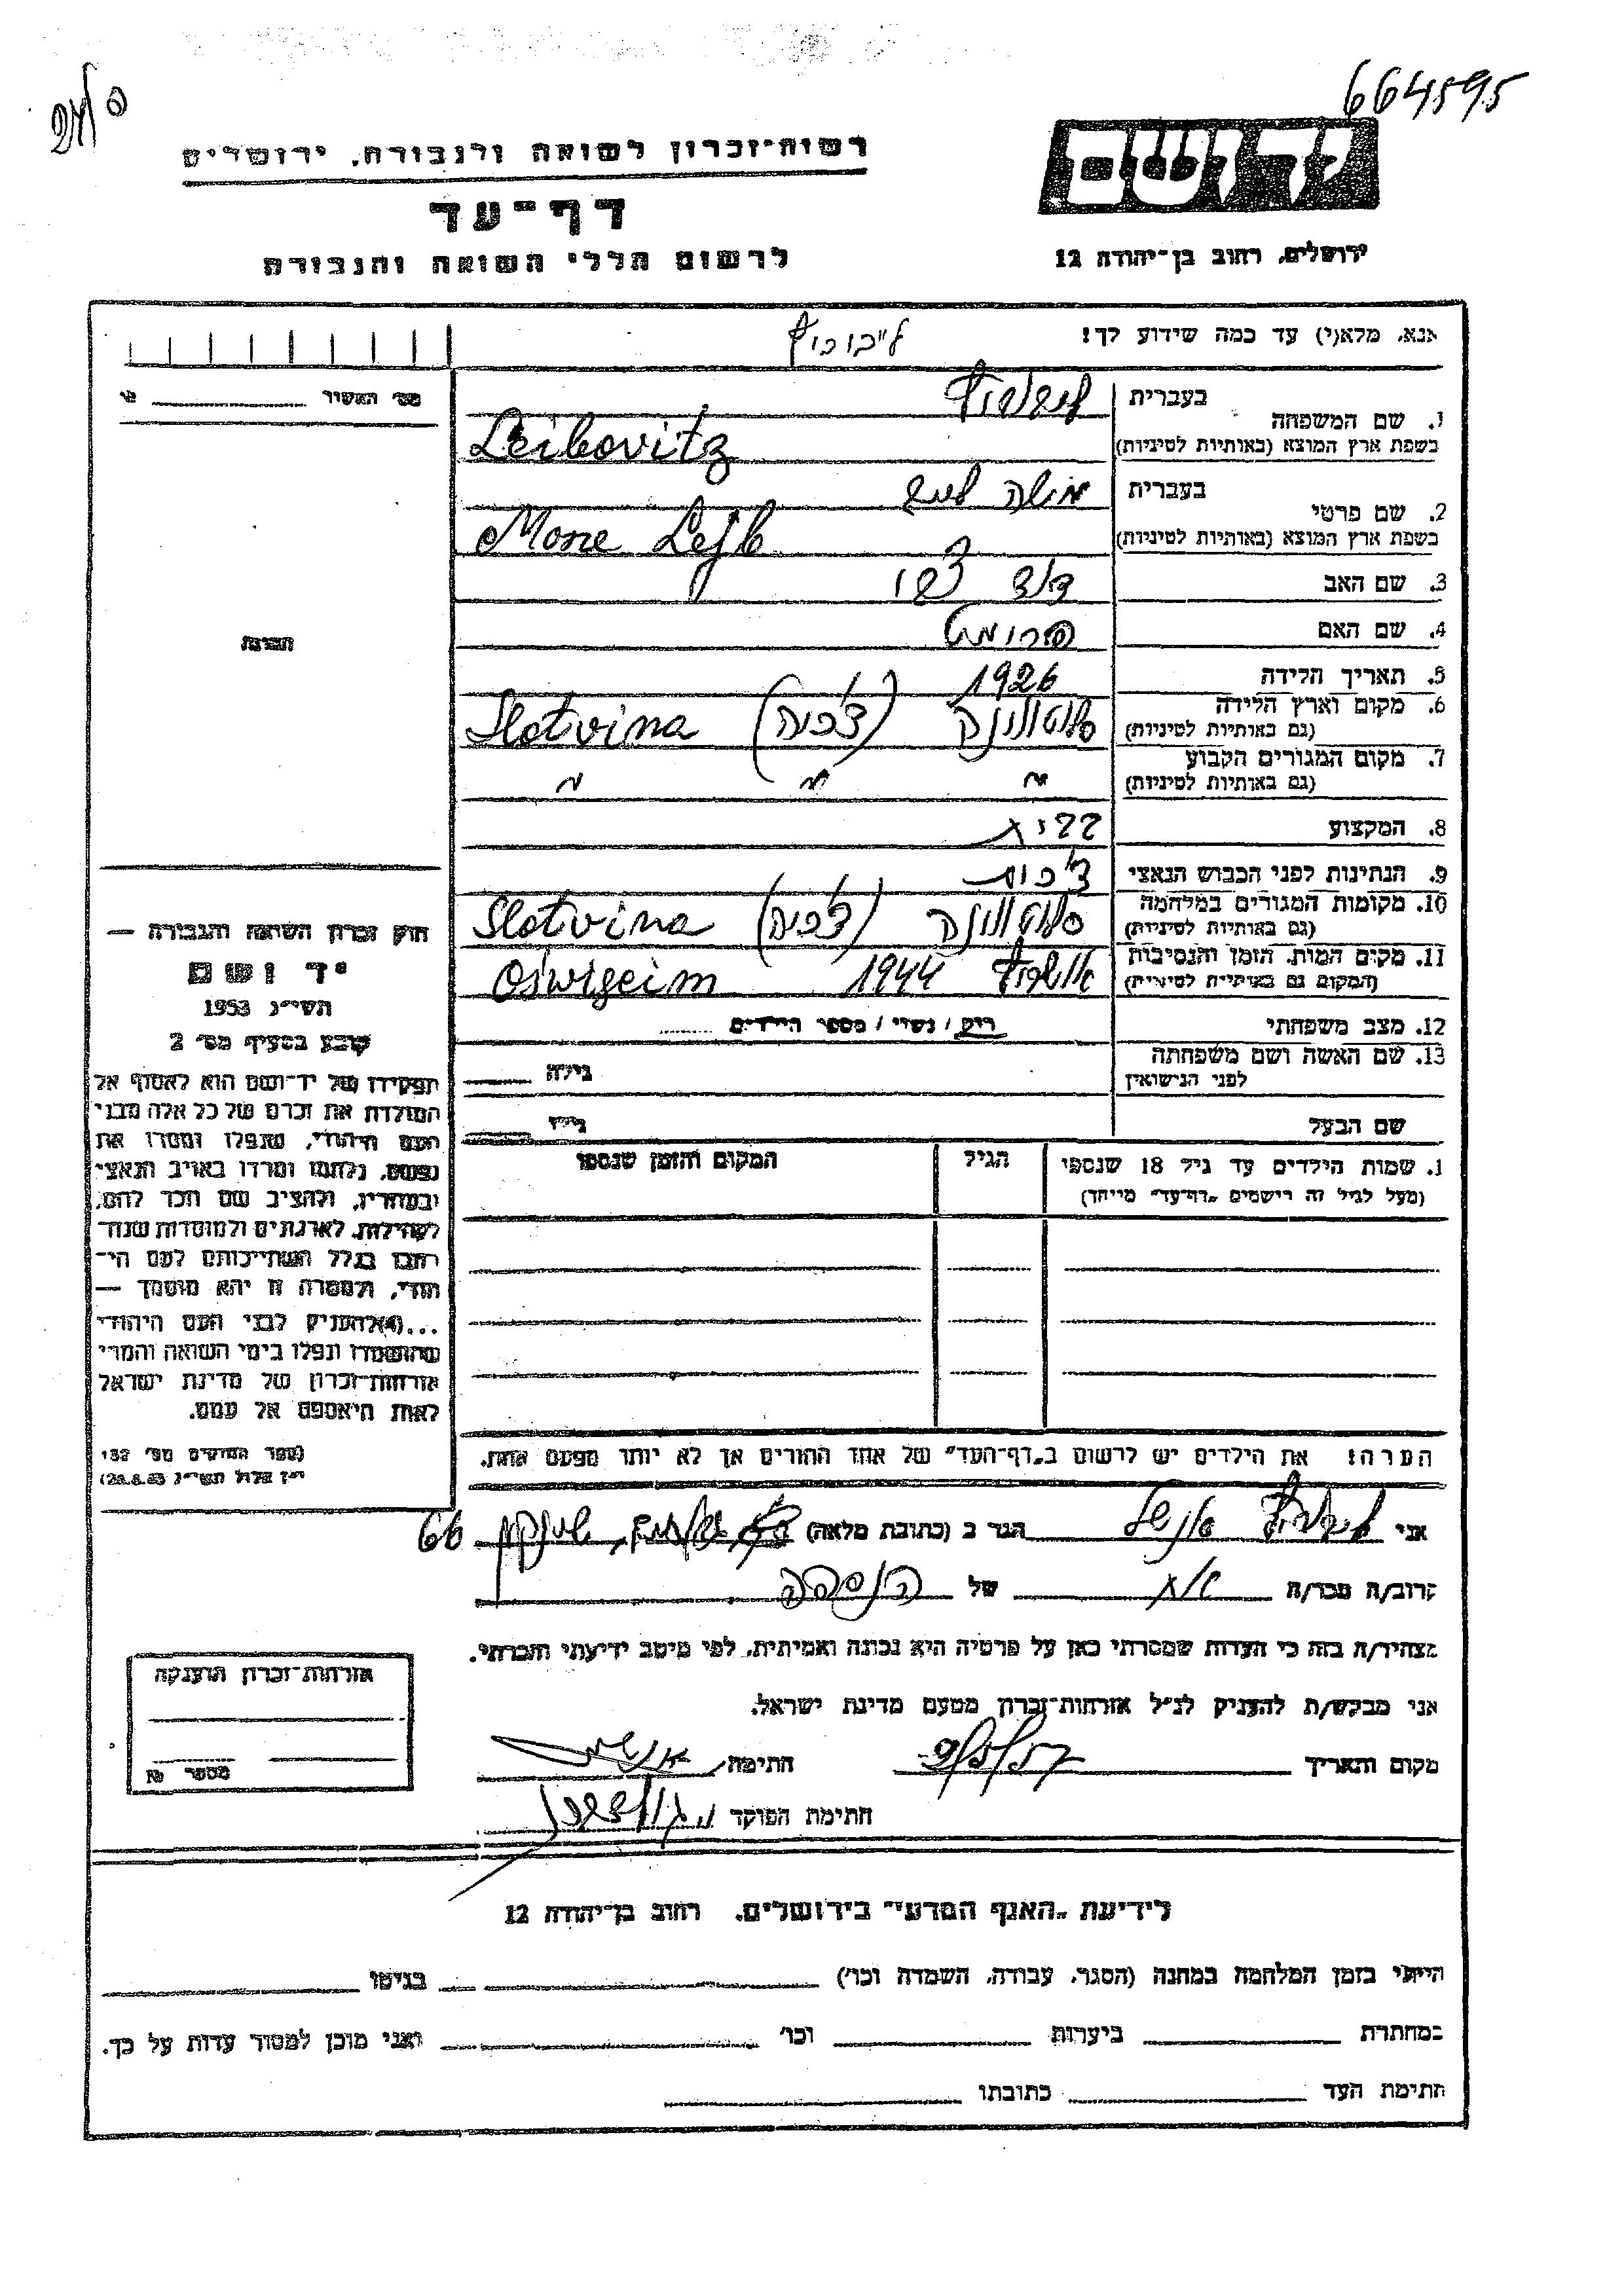 664595
רשות-זכרון לשואה ולגבורה, ירושלים
יד ושם
דף-עד
לרשום חללי השואה והגבורה
ירושלים, רחוב בן-יהודה 12
אנא, מלא(י) עד כמה שידוע לך!
ליבוביץ
מס' האשיר
1. שם המשפחה
בעברית לייבוביץ
בשפת ארץ המוצא (באותיות לטיניות) Leibovitz
2. שם פרטי
בעברית משה לייב
בשפת ארץ המוצא (באותיות לטיניות) Mosze Lejb
3. שם האב דוד צבי
4. שם האם פרומט
5. תאריך הלידה 1926
6. מקום וארץ הלידה סלוטווינה (צ'כיה) Slotvina
(גם באותיות לטיניות)
7. מקום המגורים הקבוע " " "
(גם באותיות לטיניות)
8. המקצוע
9. הנתינות לפני הכבוש הנאצי צ'כית
10. מקומות המגורים במלחמה סלוטווינה (צ'כיה) Slotvina
(גם באותיות לטיניות)
11. מקום המות, הזמן והנסיבות אושוויץ 1944 Oswigeim
(המקום גם באותיות לטיניות)
12. מצב משפחתי רוק / נשוי / מספר הילדים
13. שם האשה ושם משפחתה
לפני הנישואין גילה
שם הבעל גילו
1. שמות הילדים עד גיל 18 שנספו הגיל המקום והזמן שנספו
(מעל לגיל זה רישמים "דף-עד" מייחד)
הערה: את הילדים יש לרשום ב"דף-העד" של אחד ההורים אך לא יותר מפעם אחת.
תמונה
חוק זכרון השואה והגבורה —
יד ושם
תשי"ג 1953
קובע בסעיף מס' 2
תפקידו של יד-ושם הוא לאסוף אל
המולדת את זכרם של כל אלה מבני
העם היהודי, שנפלו ומסרו את
נפשם, נלחמו ומרדו באויב הנאצי
ובעוזריו, ולהציב שם וזכר להם,
לקהילות, לארגונים ולמוסדות שנח-
רבו בגלל השתייכותם לעם הי-
הודי, ולמטרה זו יהא מוסמך —
...(4) להעניק לבני העם היהודי
שהושמדו ונפלו בימי השואה והמרי
אזרחות-זכרון של מדינת ישראל
לאות היאספם אל עמם.
(ספר החוקים מס' 132
י"ז אלול תשי"ג 28.8.53)
אני לייבוביץ אנשל הגר ב (כתובת מלאה) 66
קרוב/ה מכר/ה אח של הנספה
מצהיר/ה בזה כי העדות שמסרתי כאן על פרטיה היא נכונה ואמיתית, לפי מיטב ידיעתי והכרתי.
אני מבקש/ת להעניק לנ"ל אזרחות-זכרון מטעם מדינת ישראל.
מקום ותאריך 9/5/57 חתימה
חתימת הפוקד
אזרחות-זכרון הוענקה
מספר №
לידיעת "האגף המדעי" בירושלים, רחוב בן-יהודה 12
הייתי בזמן המלחמה במחנה (הסגר, עבודה, השמדה וכו') בגיטו
במחתרת ביערות וכו' ואני מוכן למסור עדות על כך.
חתימת העד כתובתו